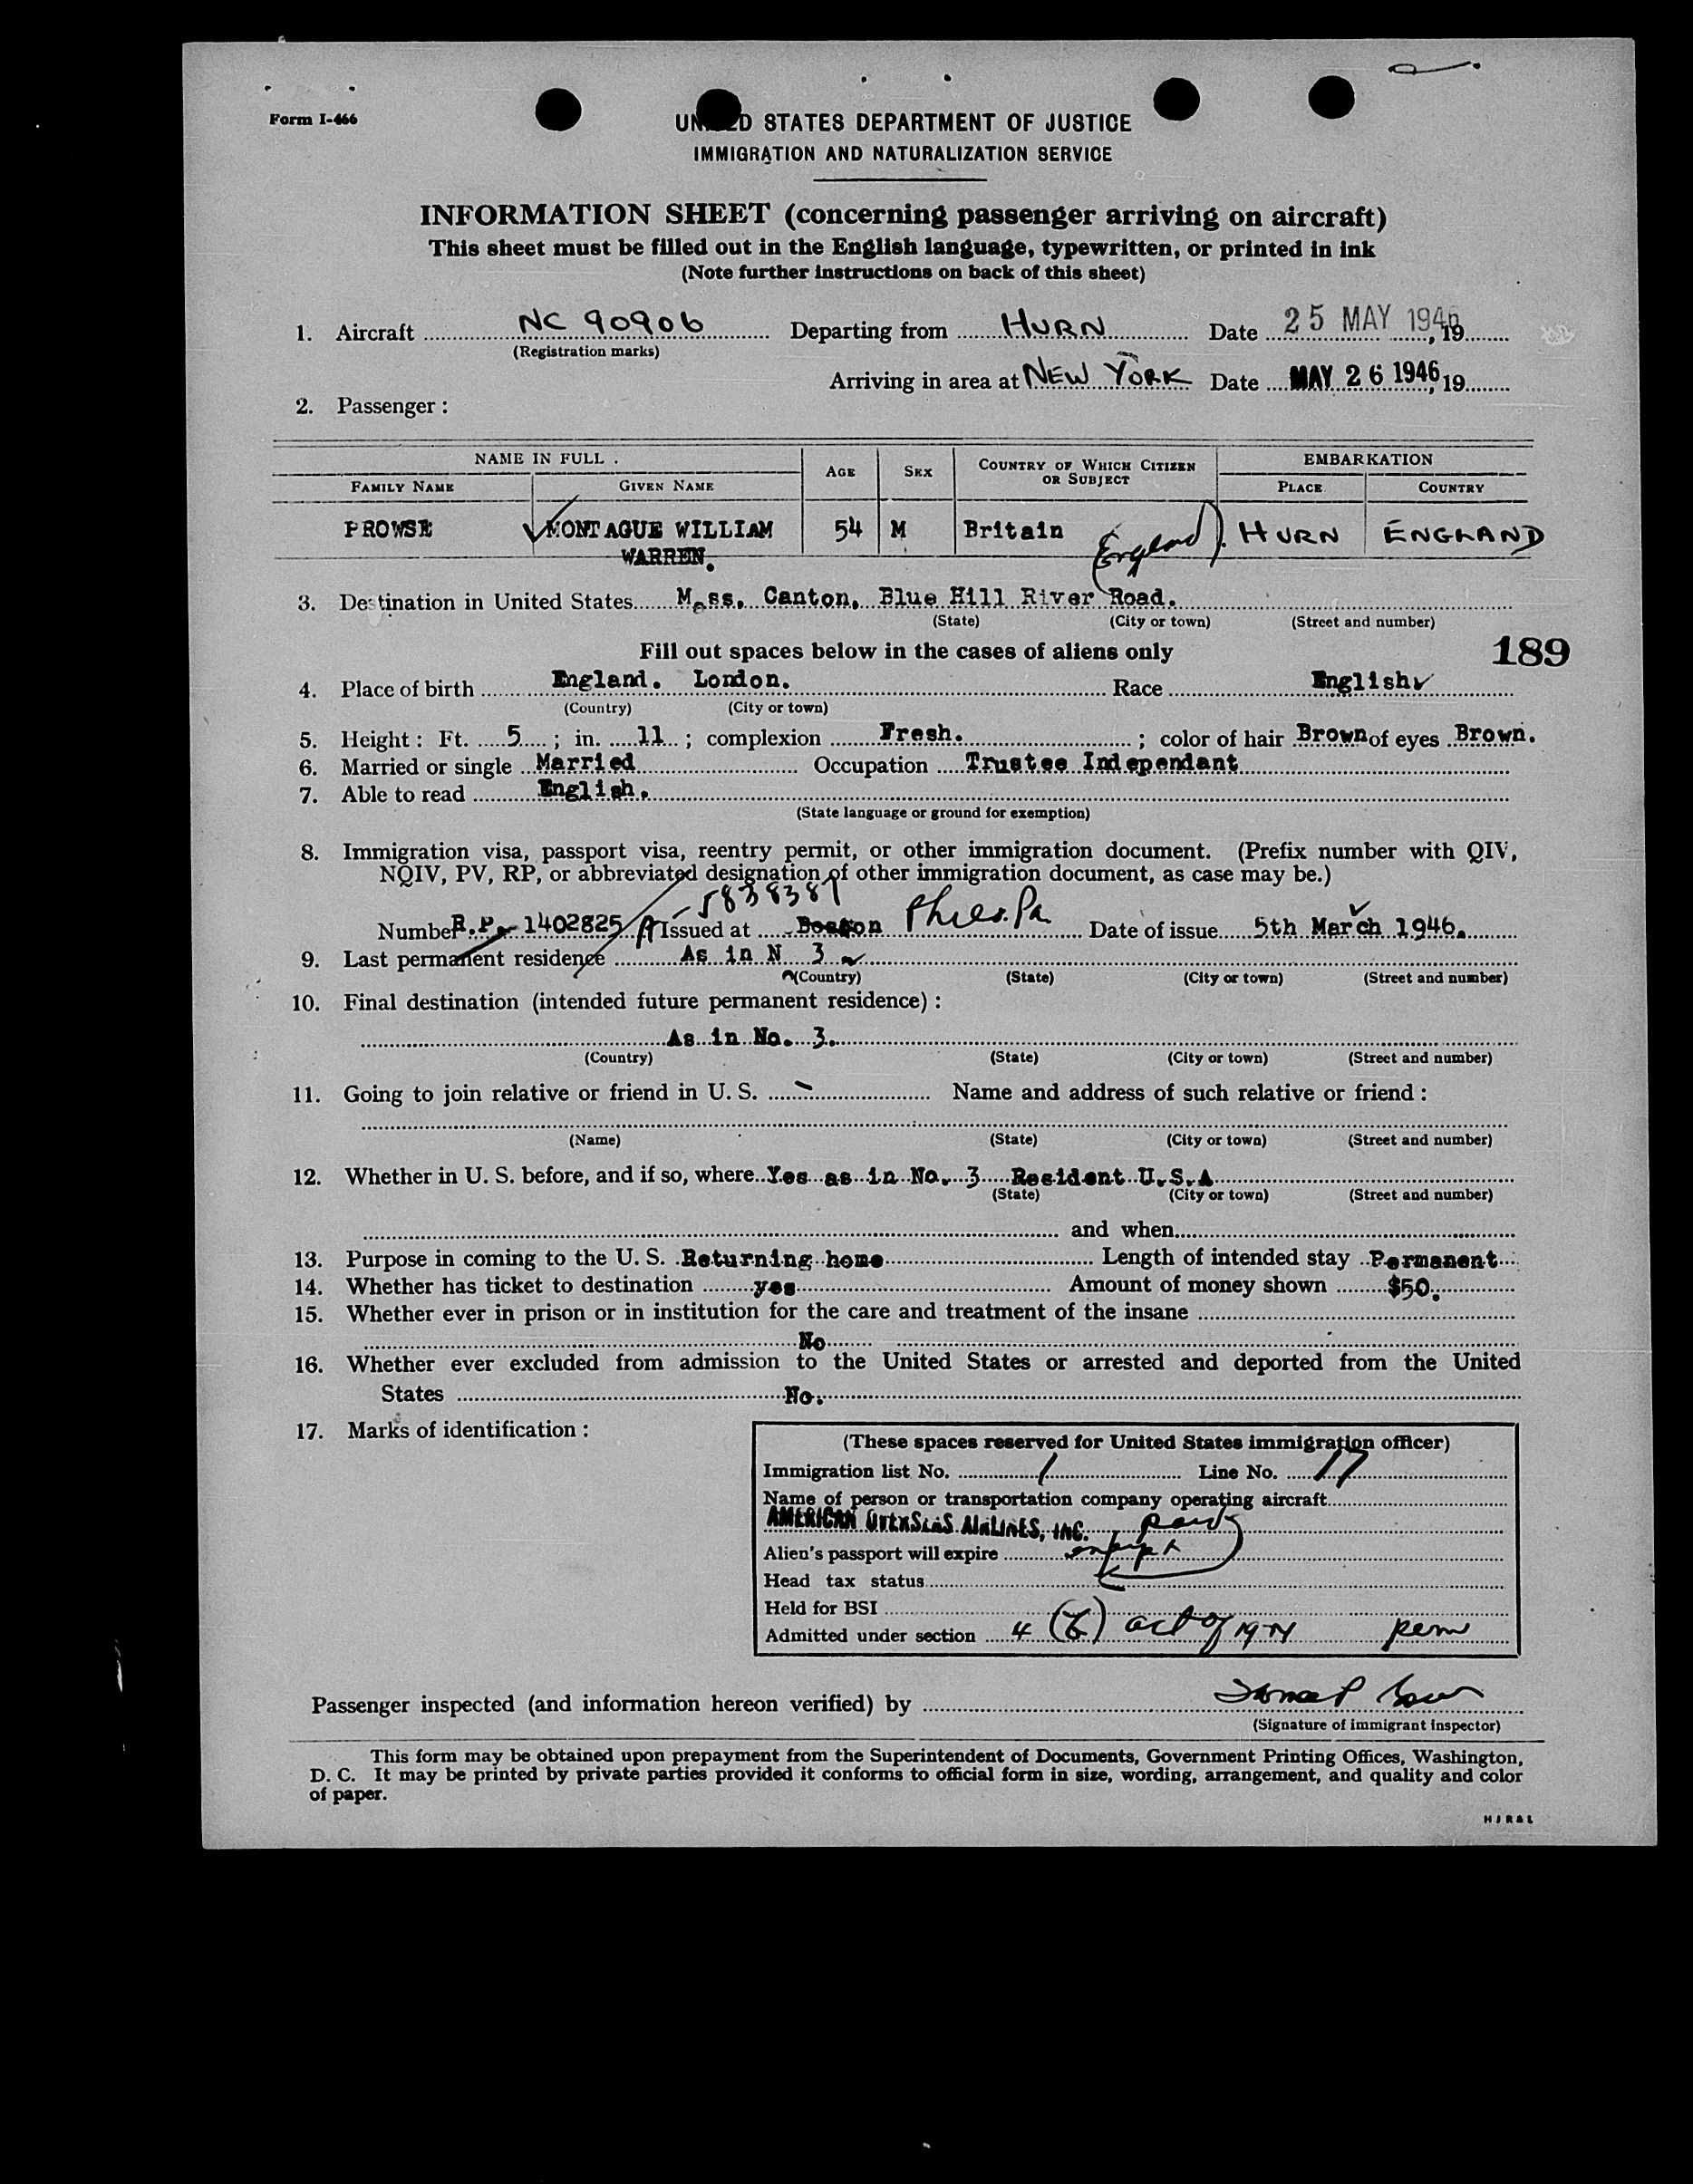 Form I-466
UNITED STATES DEPARTMENT OF JUSTICE
IMMIGRATION AND NATURALIZATION SERVICE
INFORMATION SHEET (concerning passenger arriving on aircraft)
This sheet must be filled out in the English language, typewritten, or printed in ink
(Note further instructions on back of this sheet)
1. Aircraft NC 90906 Departing from HURN Date 25 MAY 1946, 19
(Registration marks)
Arriving in area at NEW YORK Date MAY 26 1946, 19
2. Passenger :
NAME IN FULL . AGE SEX COUNTRY OF WHICH CITIZEN OR SUBJECT EMBARKATION
FAMILY NAME GIVEN NAME PLACE COUNTRY
PROWSE MONTAGUE WILLIAM 54 M Britain (England) HURN ENGLAND
WARREN.
3. Destination in United States Mass. Canton. Blue Hill River Road.
(State) (City or town) (Street and number)
Fill out spaces below in the cases of aliens only 189
4. Place of birth England. London. Race English
(Country) (City or town)
5. Height : Ft. 5 ; in. 11 ; complexion Fresh. ; color of hair Brown of eyes Brown.
6. Married or single Married Occupation Trustee Independant
7. Able to read English.
(State language or ground for exemption)
8. Immigration visa, passport visa, reentry permit, or other immigration document. (Prefix number with QIV,
NQIV, PV, RP, or abbreviated designation of other immigration document, as case may be.)
A-5838389
Number R.P. 1402825 Issued at Boston Phila. Pa Date of issue 5th March 1946.
9. Last permanent residence As in N 3
(Country) (State) (City or town) (Street and number)
10. Final destination (intended future permanent residence) :
As in No. 3.
(Country) (State) (City or town) (Street and number)
11. Going to join relative or friend in U. S. Name and address of such relative or friend :
(Name) (State) (City or town) (Street and number)
12. Whether in U. S. before, and if so, where Yes as in No. 3 Resident U.S.A
(State) (City or town) (Street and number)
and when
13. Purpose in coming to the U. S. Returning home Length of intended stay Permanent
14. Whether has ticket to destination yes Amount of money shown $50.
15. Whether ever in prison or in institution for the care and treatment of the insane
No
16. Whether ever excluded from admission to the United States or arrested and deported from the United
States No.
17. Marks of identification :
(These spaces reserved for United States immigration officer)
Immigration list No. 1 Line No. 17
Name of person or transportation company operating aircraft
AMERICAN OVERSEAS AIRLINES, INC.
Alien's passport will expire
Head tax status
Held for BSI
Admitted under section 4 (b) act of 1924 perm
Passenger inspected (and information hereon verified) by
(Signature of immigrant inspector)
This form may be obtained upon prepayment from the Superintendent of Documents, Government Printing Offices, Washington,
D. C. It may be printed by private parties provided it conforms to official form in size, wording, arrangement, and quality and color
of paper.
H J R & L